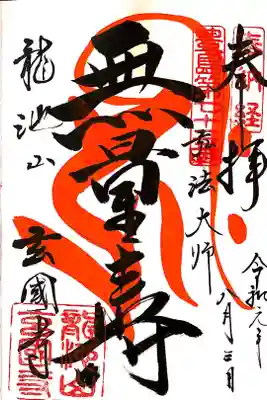 奉拝
令和元年
八月三日
弘法大師
無量寿
龍池山
玄國寺